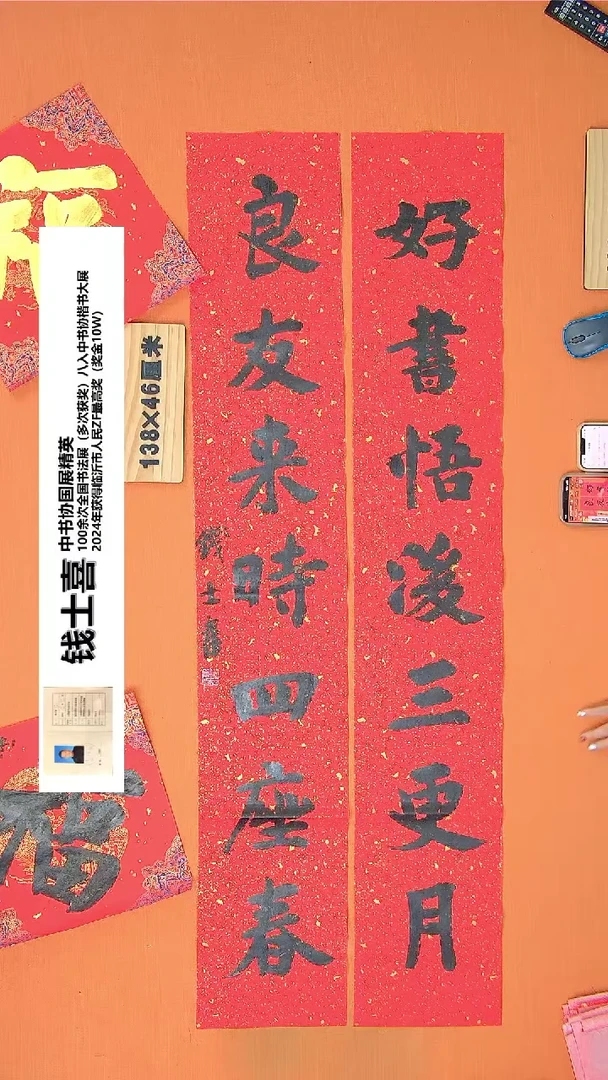 好書悟後三更月
良友来時四座春
钱士喜
138×46厘米
钱士喜
中书协国展精英
100余次全国书法展（多次获奖）八入中书协楷书大展
2024年获得临沂市人民ZF最高奖（奖金10W）
福